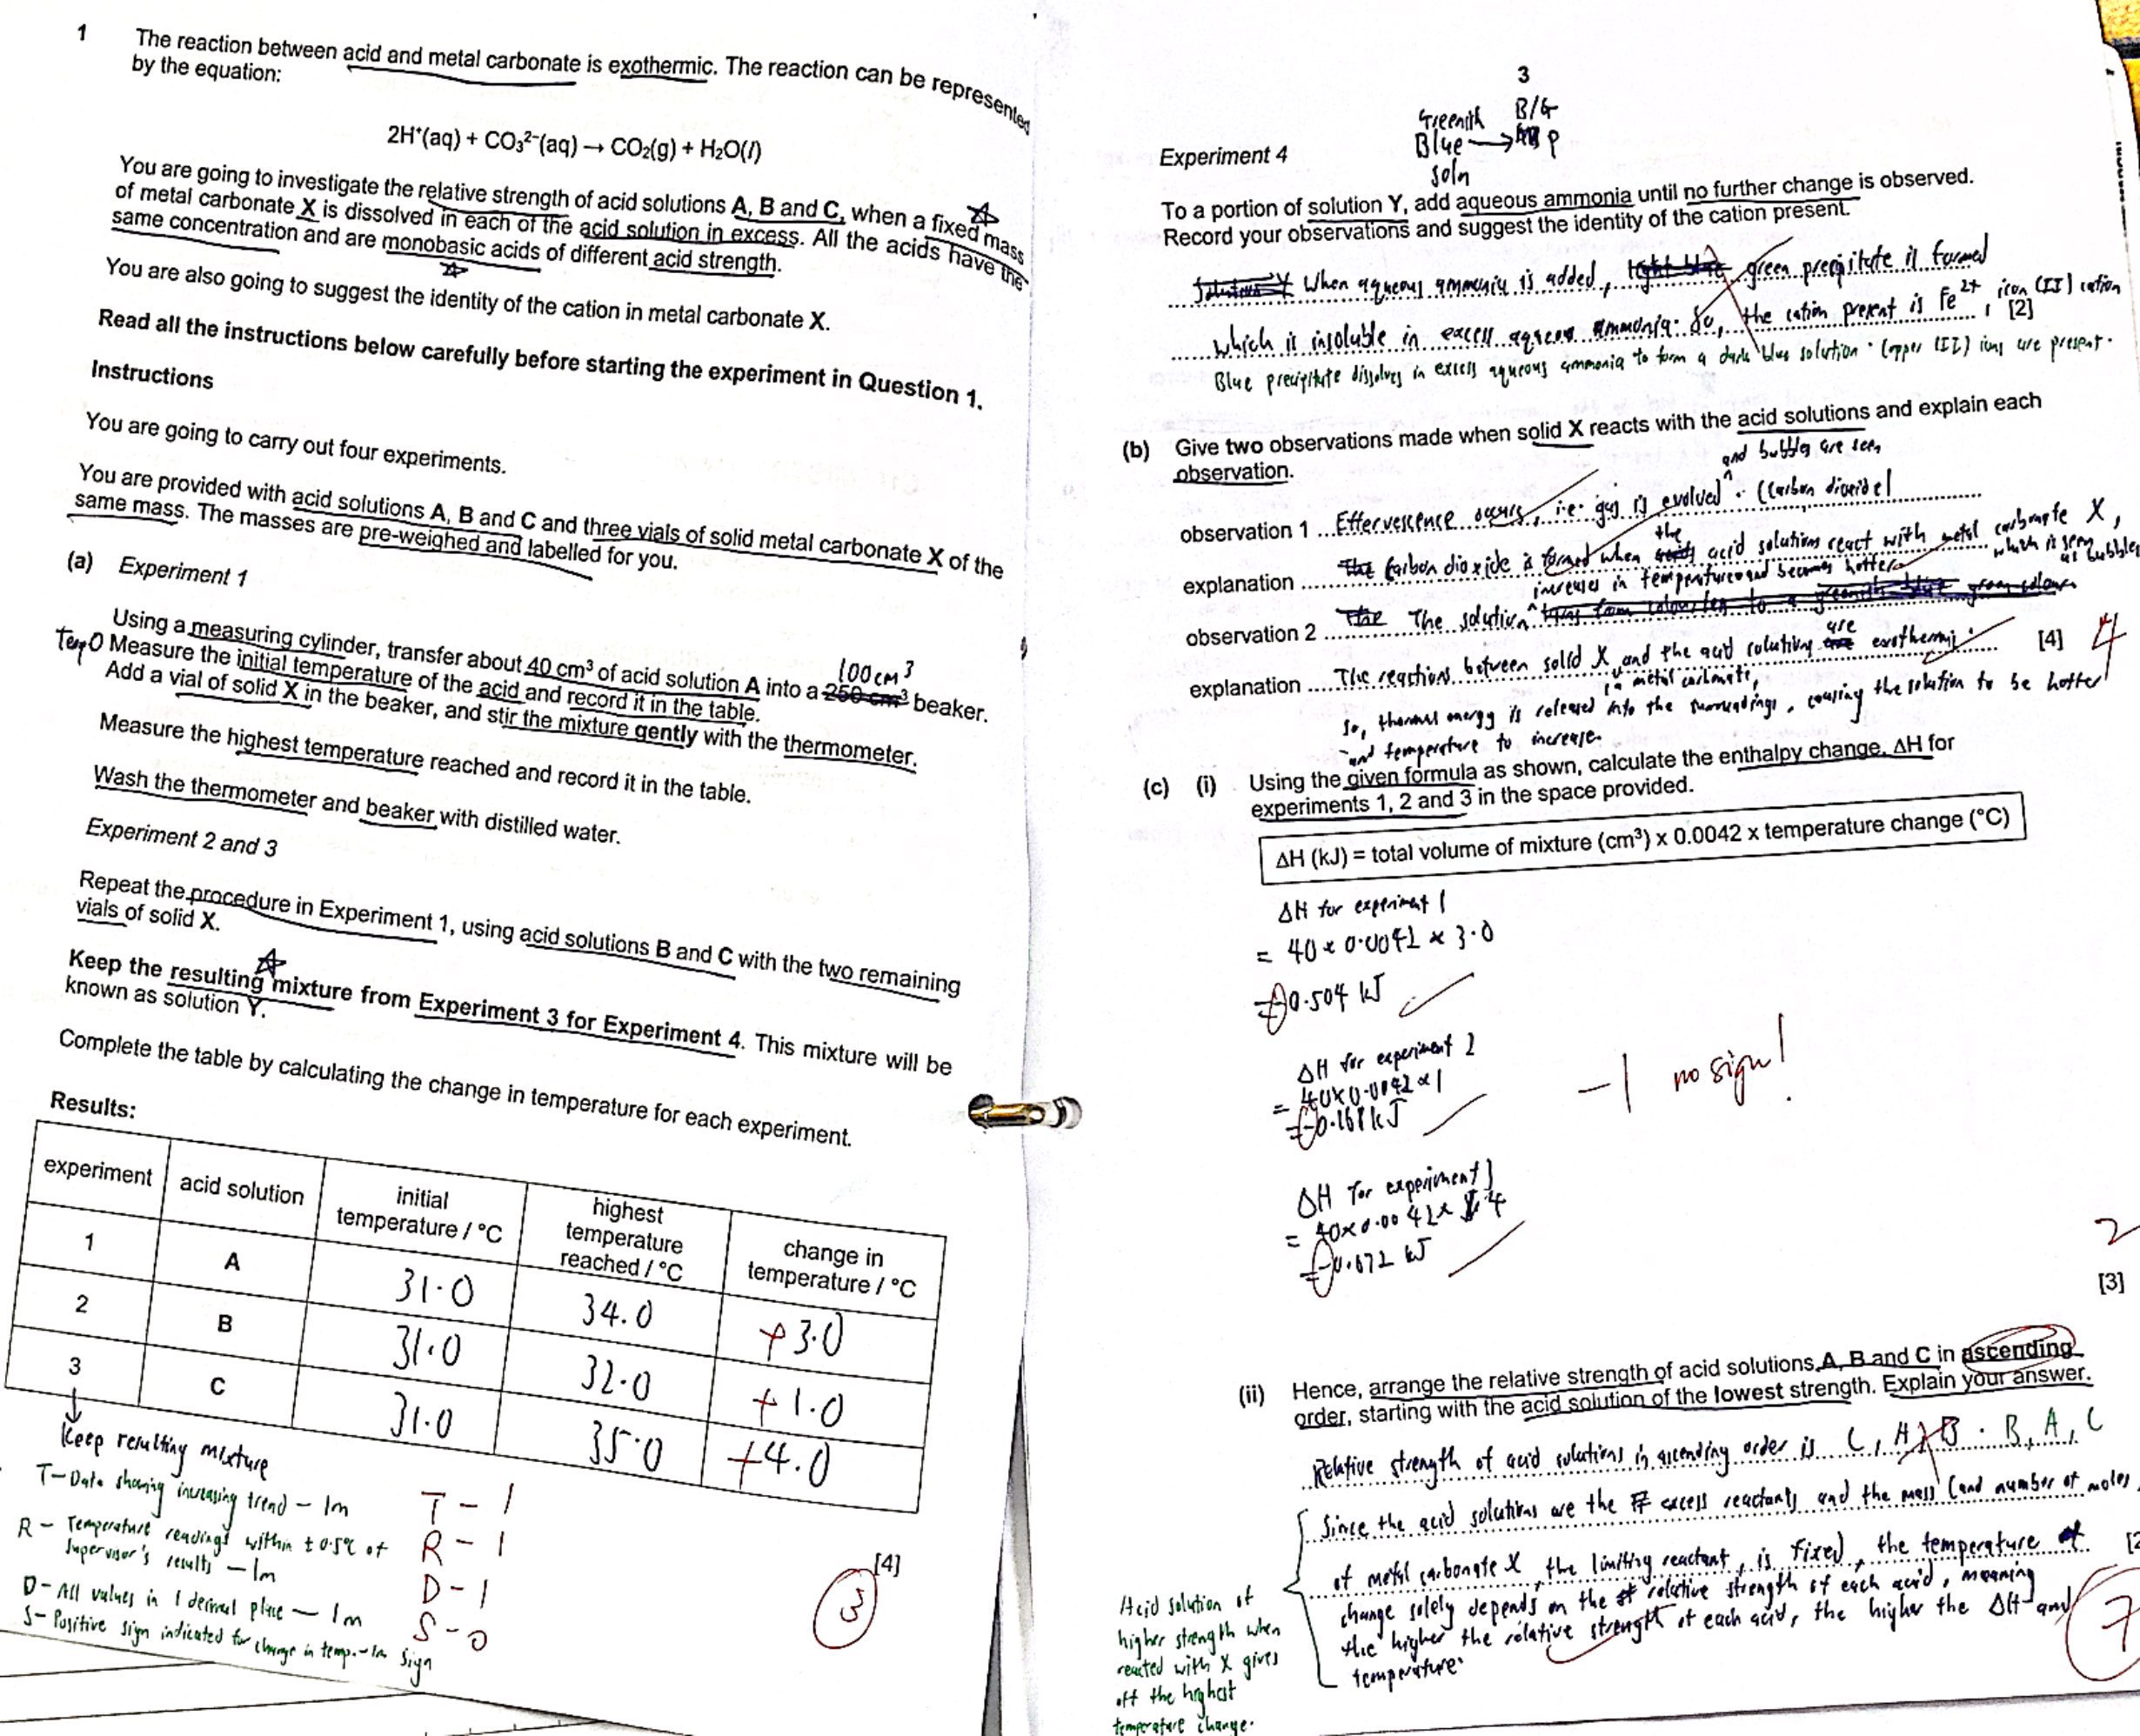 1 The reaction between acid and metal carbonate is exothermic. The reaction can be represented
by the equation:
2H⁺(aq) + CO₃²⁻(aq) → CO₂(g) + H₂O(l)
You are going to investigate the relative strength of acid solutions A, B and C, when a fixed mass
of metal carbonate X is dissolved in each of the acid solution in excess. All the acids have the
same concentration and are monobasic acids of different acid strength.
You are also going to suggest the identity of the cation in metal carbonate X.
Read all the instructions below carefully before starting the experiment in Question 1.
Instructions
You are going to carry out four experiments.
You are provided with acid solutions A, B and C and three vials of solid metal carbonate X of the
same mass. The masses are pre-weighed and labelled for you.
(a) Experiment 1
Using a measuring cylinder, transfer about 40 cm³ of acid solution A into a 250 cm³ beaker.
100 cm³
Measure the initial temperature of the acid and record it in the table.
Add a vial of solid X in the beaker, and stir the mixture gently with the thermometer.
Measure the highest temperature reached and record it in the table.
Wash the thermometer and beaker with distilled water.
Experiment 2 and 3
Repeat the procedure in Experiment 1, using acid solutions B and C with the two remaining
vials of solid X.
Keep the resulting mixture from Experiment 3 for Experiment 4. This mixture will be
known as solution Y.
Complete the table by calculating the change in temperature for each experiment.
Results:
experiment acid solution initial temperature / °C highest temperature reached / °C change in temperature / °C
1 A 31.0 34.0 +3.0
2 B 31.0 32.0 +1.0
3 C 31.0 35.0 +4.0
Keep resulting mixture
T - Data showing increasing trend - 1m
R - Temperature readings within ± 0.5°C of
supervisor's results - 1m
D - All values in 1 decimal place - 1m
S - Positive sign indicated for change in temp. - 1m
T - 1
R - 1
D - 1
S - 0
sign
[4]
3
3
Greenish B/G
Blue → P
soln
Experiment 4
To a portion of solution Y, add aqueous ammonia until no further change is observed.
Record your observations and suggest the identity of the cation present.
When aqueous ammonia is added, green precipitate is formed
which is insoluble in excess aqueous ammonia. So, the cation present is Fe²⁺, iron (II) cation
[2]
Blue precipitate dissolves in excess aqueous ammonia to form a dark blue solution. Copper (II) ions are present.
(b) Give two observations made when solid X reacts with the acid solutions and explain each
observation.
and bubbles are seen
observation 1 Effervescence occurs, i.e. gas is evolved. (Carbon dioxide)
explanation The Carbon dioxide is formed when the acid solutions react with metal carbonate X,
which is seen as bubbles
increases in temperature and becomes hotter
observation 2 The solution
explanation The reactions between solid X, a metal carbonate, and the acid solutions are exothermic.
[4] 4
so, thermal energy is released into the surroundings, causing the solution to be hotter
and temperature to increase.
(c) (i) Using the given formula as shown, calculate the enthalpy change, ΔH for
experiments 1, 2 and 3 in the space provided.
ΔH (kJ) = total volume of mixture (cm³) x 0.0042 x temperature change (°C)
ΔH for experiment 1
= 40 x 0.0042 x 3.0
= -0.504 kJ
ΔH for experiment 2
= 40 x 0.0042 x 1
= -0.168 kJ
-1 no sign!
ΔH for experiment 3
= 40 x 0.0042 x 4
= -0.672 kJ
2
[3]
(ii) Hence, arrange the relative strength of acid solutions A, B and C in ascending
order, starting with the acid solution of the lowest strength. Explain your answer.
Relative strength of acid solutions in ascending order is C, A, B. B, A, C
Since the acid solutions are the excess reactants and the mass (and number of moles)
of metal carbonate X, the limiting reactant, is fixed, the temperature
change solely depends on the relative strength of each acid, meaning
the higher the relative strength of each acid, the higher the ΔH and
temperature.
7
Acid solution of
higher strength when
reacted with X gives
off the highest
temperature change.